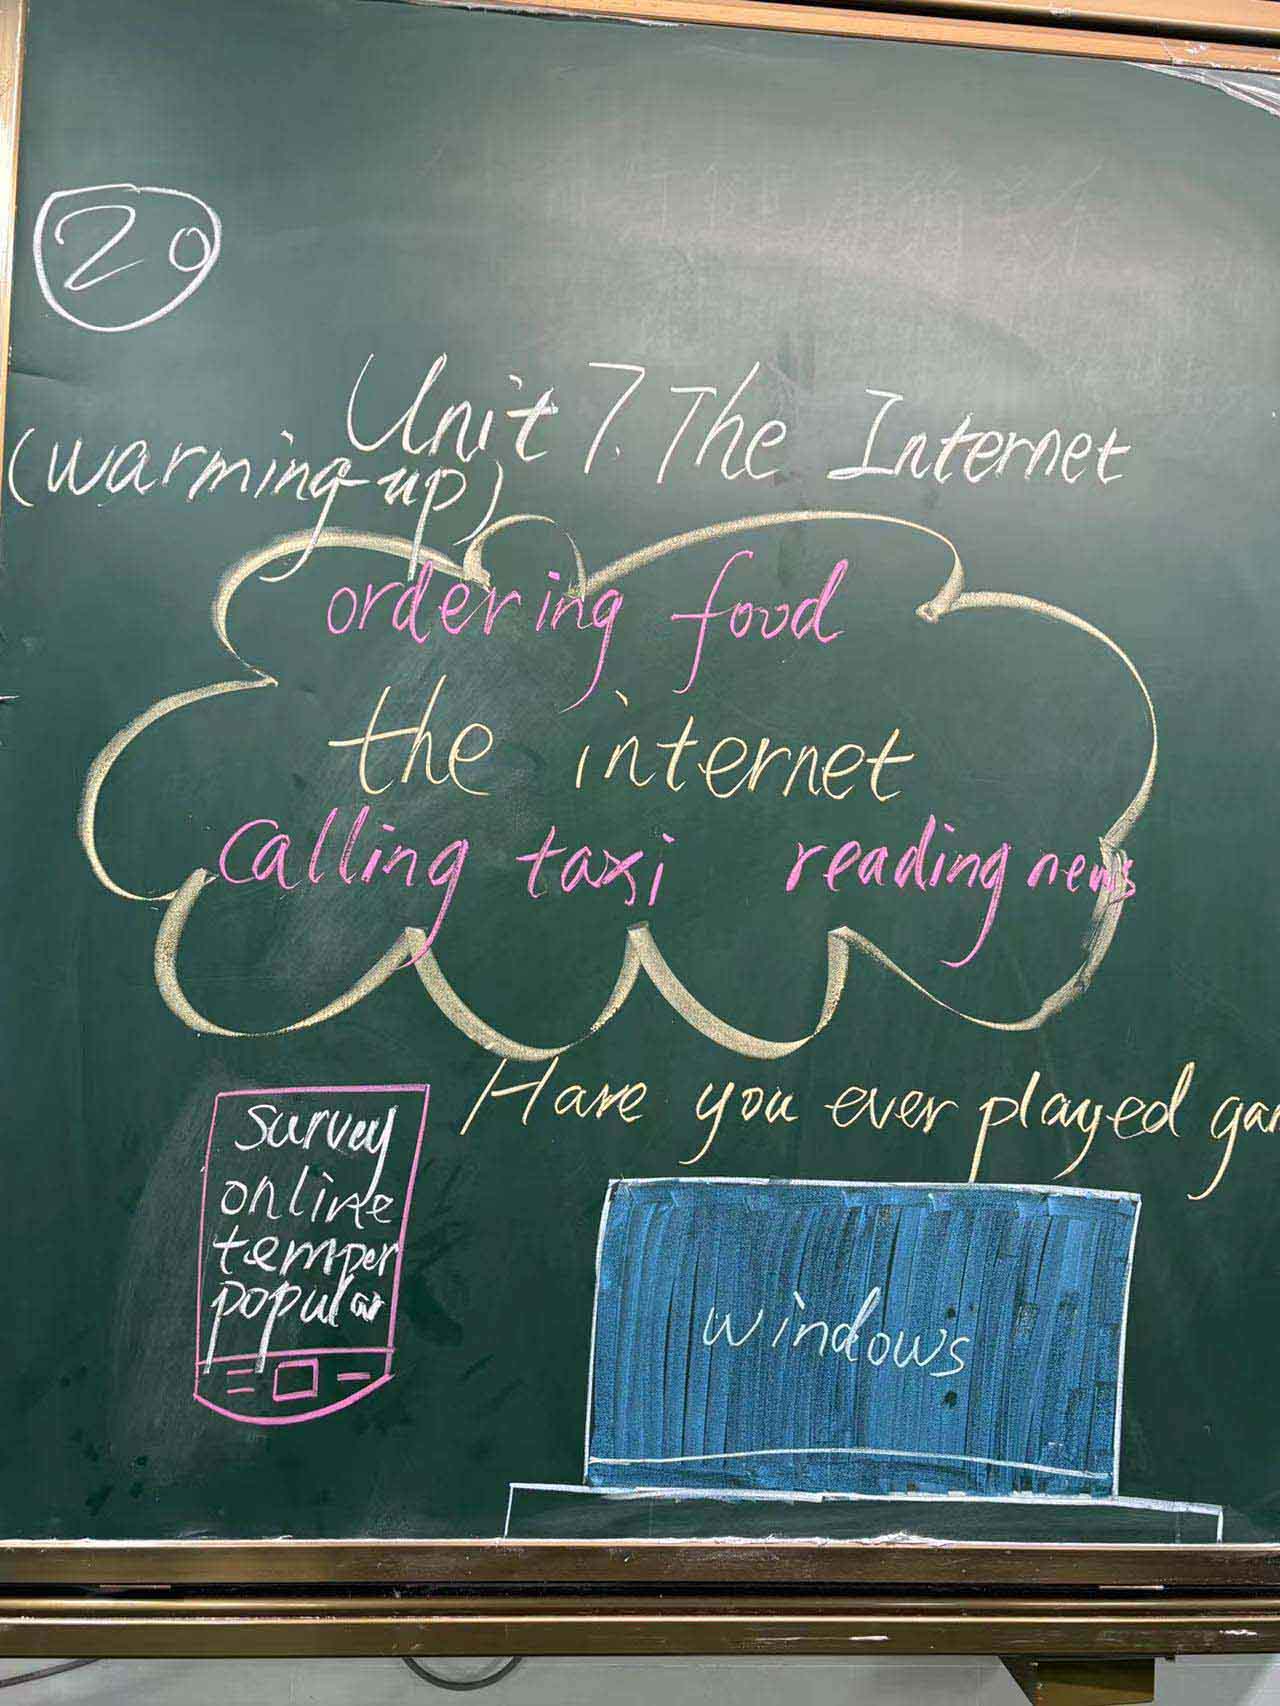 20
Unit 7. The Internet
(warming-up)
ordering food
the internet
calling taxi reading news
Have you ever played
survey
online
temper
popular
windows